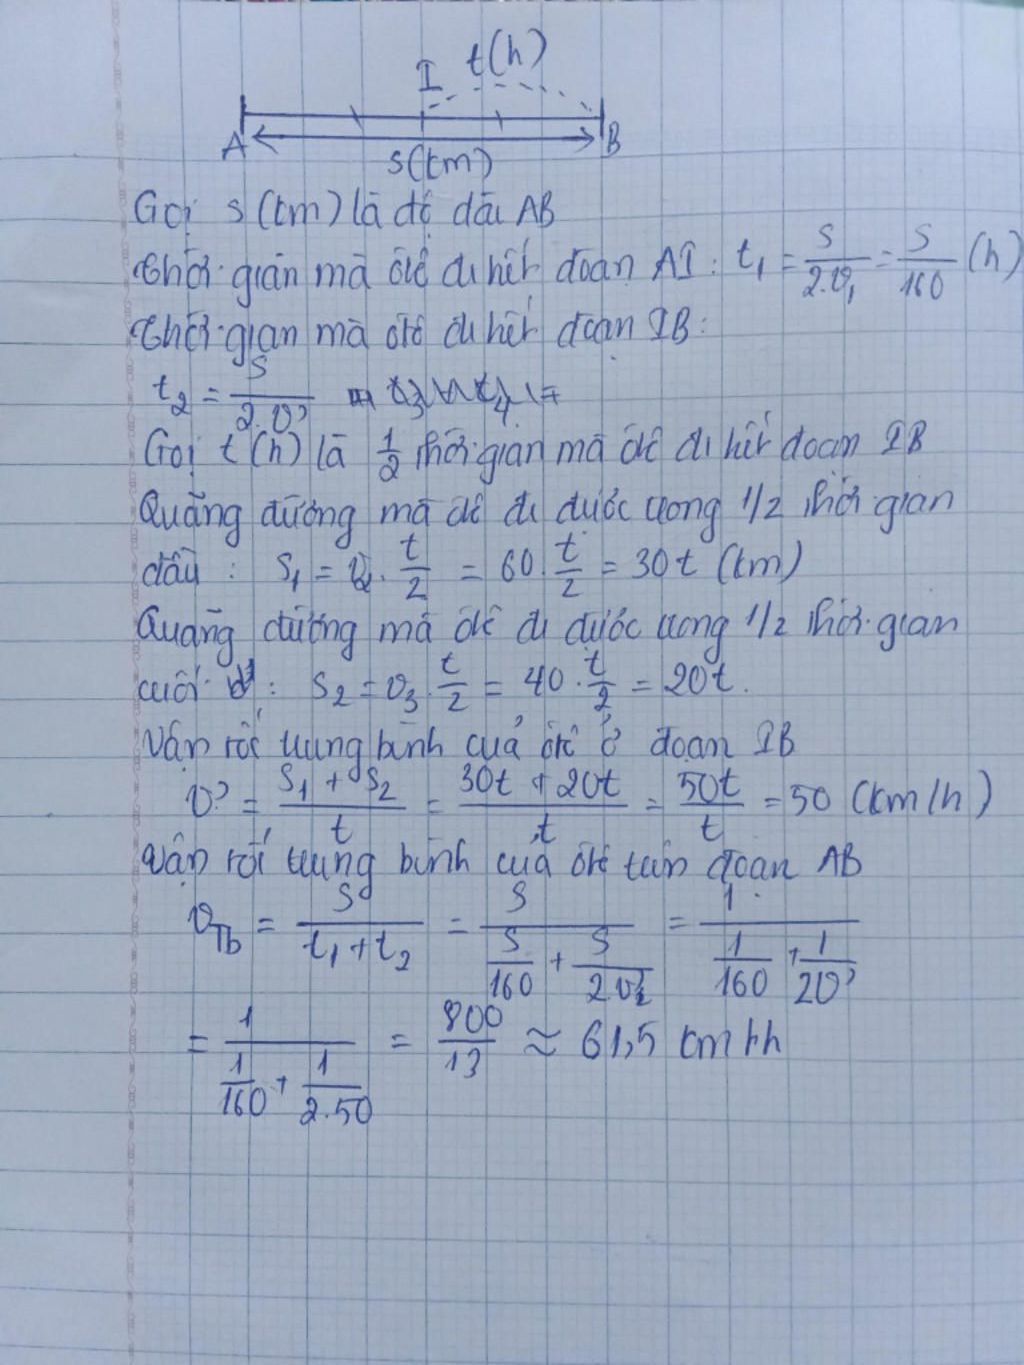 I t(h)
A B
s(km)
Gọi s(km) là độ dài AB
Thời gian mà ôtô đi hết đoạn AI: t₁ = s/2.v₁ = s/160 (h)
Thời gian mà ôtô đi hết đoạn IB:
t₂ = s/2.v'
Gọi t(h) là 1/2 thời gian mà ôtô đi hết đoạn IB
Quãng đường mà ôtô đi được trong 1/2 thời gian
đầu: s₁ = v₂.t/2 = 60.t/2 = 30t (km)
Quãng đường mà ôtô đi được trong 1/2 thời gian
cuối: s₂ = v₃.t/2 = 40.t/2 = 20t.
Vận tốc trung bình của ôtô ở đoạn IB
v' = (s₁ + s₂)/t = (30t + 20t)/t = 50t/t = 50 (km/h)
Vận tốc trung bình của ôtô trên đoạn AB
v_Tb = s/(t₁+t₂) = s/(s/160 + s/2v') = 1/(1/160 + 1/2v')
= 1/(1/160 + 1/2.50) = 800/13 ≈ 61,5 km/h